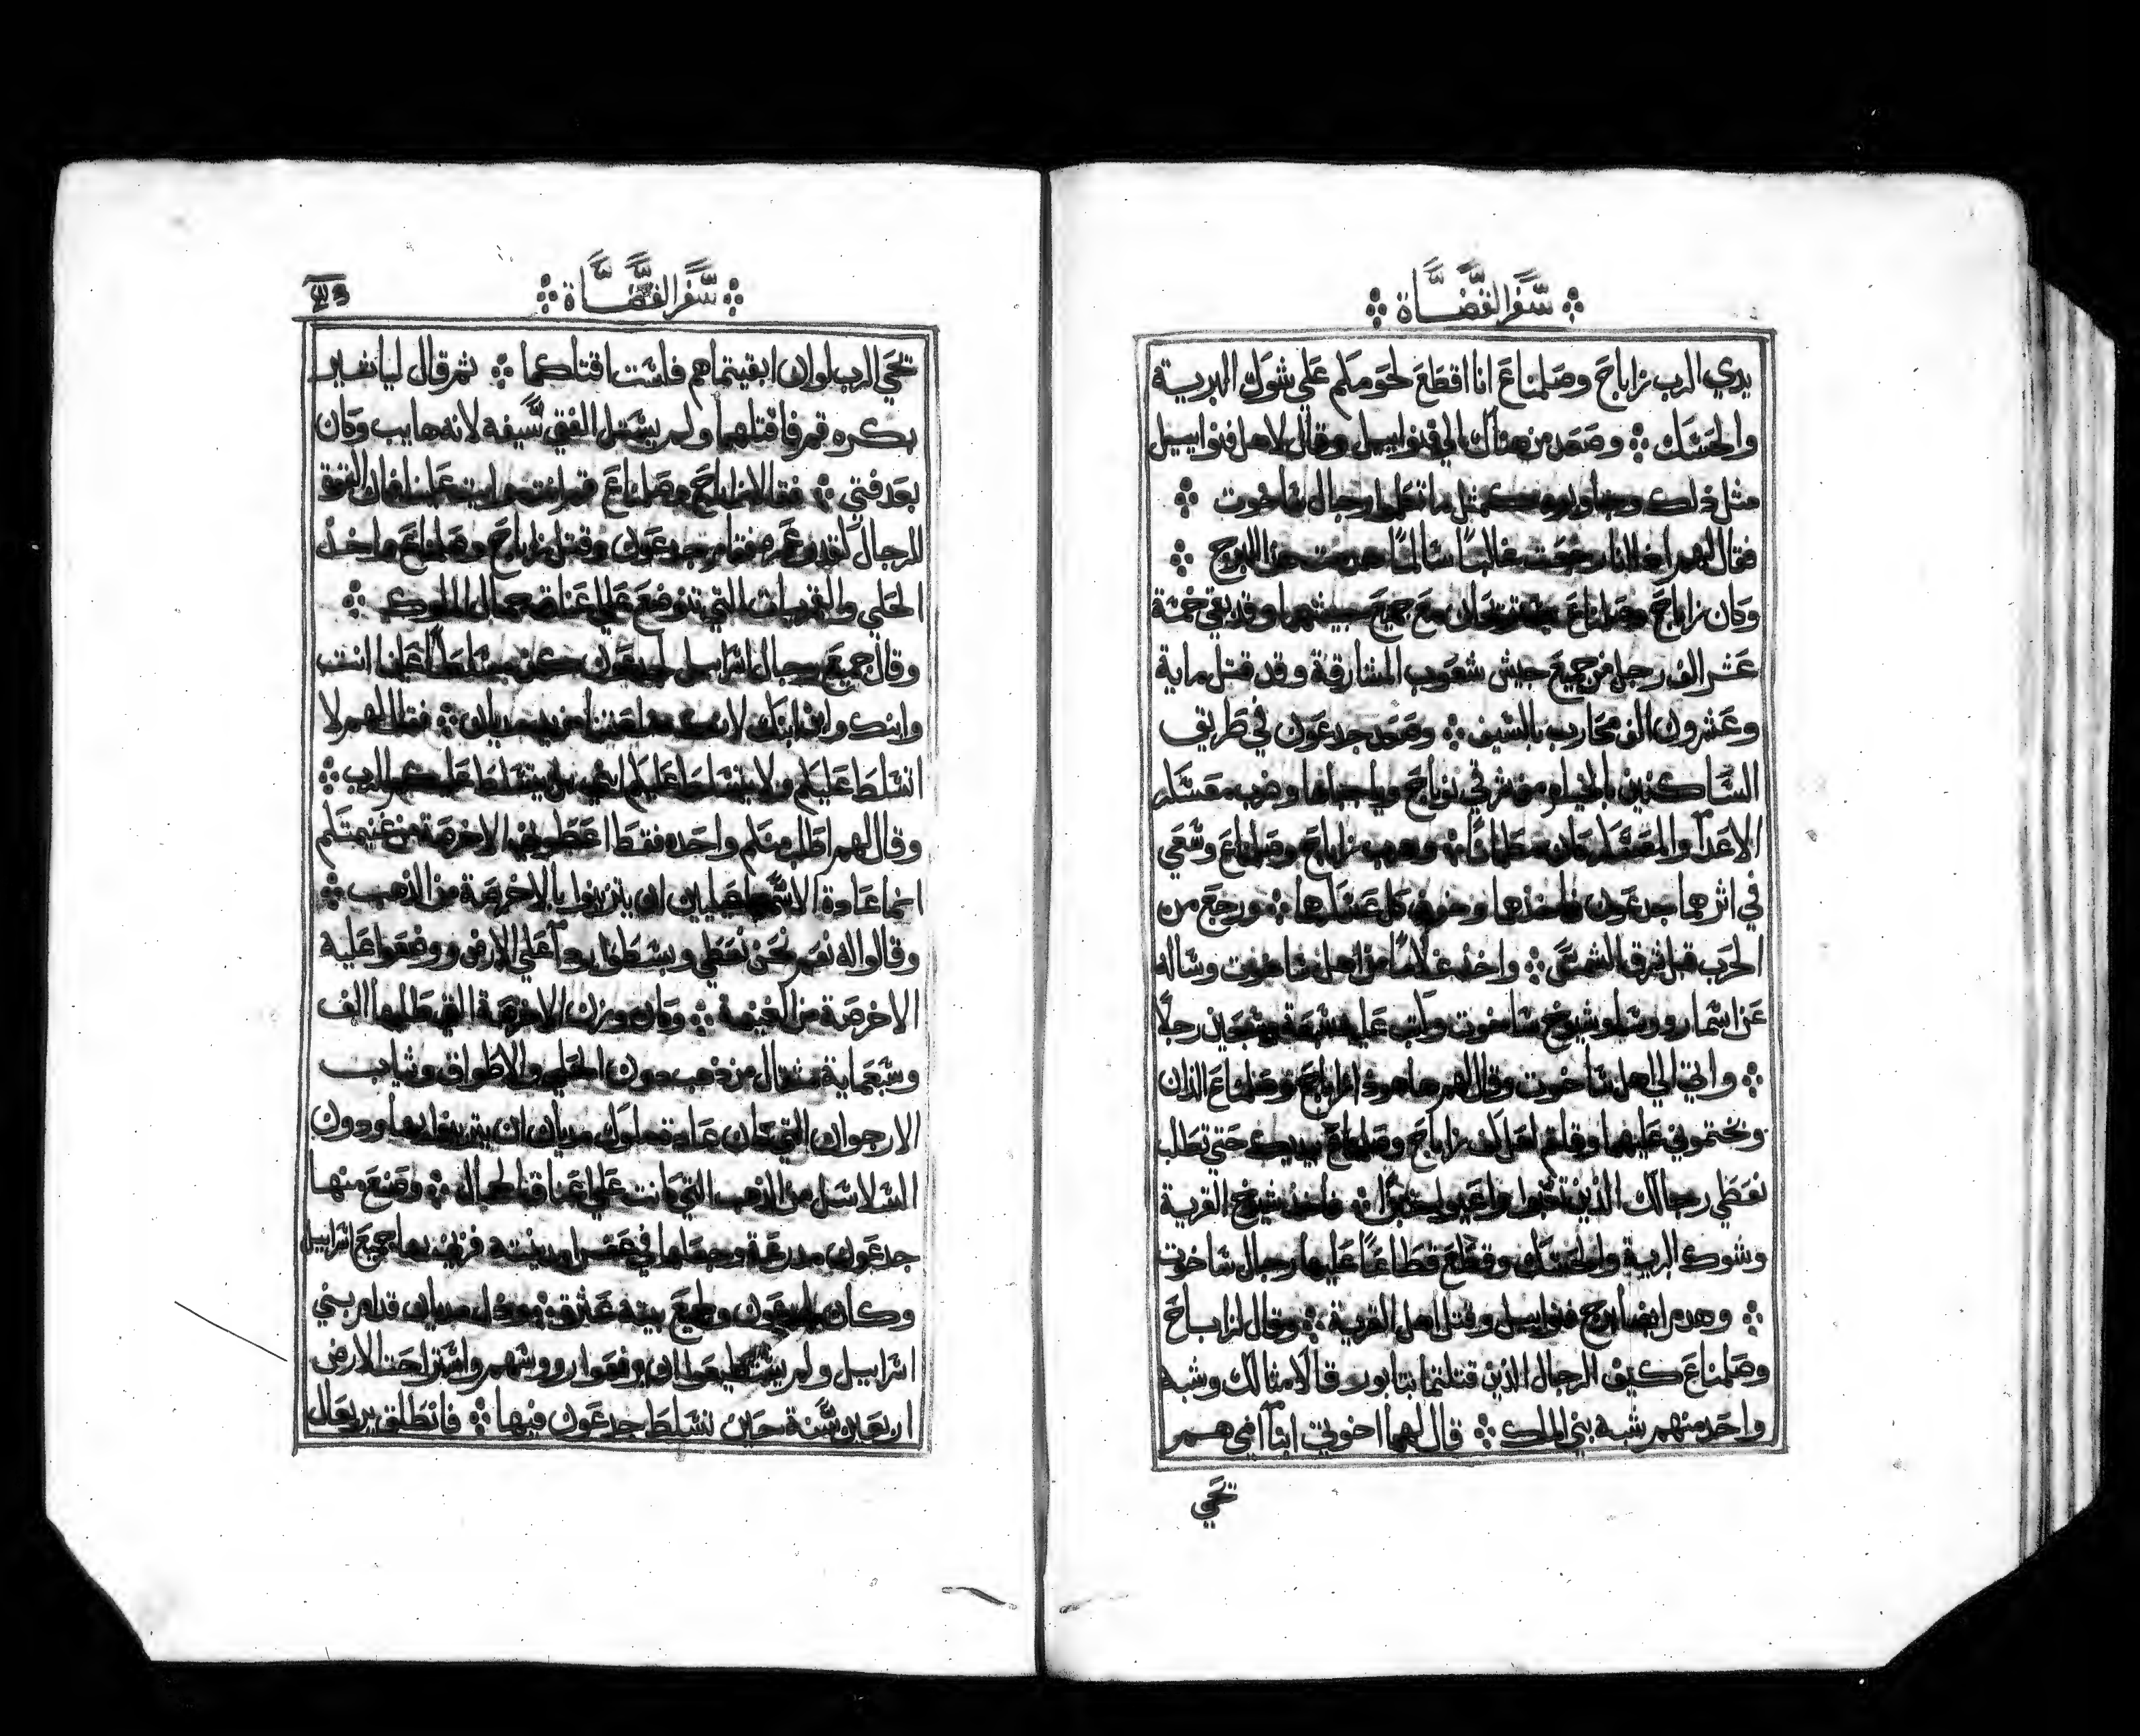 سفر القضاة
يدي الرب زاباح وصلمناع انا اقطع لحومكم علي شوك البرية
والحسك وصعد من هناك الي فنوابيل وقال لاهل فنوابيل
مثل ذلك وجاوبوه كمثل ما رجال ساخوت
فقال لهم اذا انا رجعت غالبًا سالمًا هدمت هذا البرج
وكان زاباح وصلمناع مع جميع جيشهما وقد بقي خمسة
عشر الف رجل من جميع جيش شعوب المشارقة وقد قتل ماية
وعشرون الف محارب بالسيف وصعد جدعون في طريق
الساكنين بالخيام من شرقي نوباح وياجباها وضرب معسكر
الاعدآ والمعسكر كان وهرب زاباح وصلمناع وسعي
في اثرهما جدعون فاخذهما وخوف كل عسكرها ورجع من
الحرب قبل شرق الشمس واخذ غلامًا من اهل ساخوت وساله
عن اسما رووسا وشيوخ ساخوت وكتب سبعة وسبعين رجلًا
واتي الي اهل ساخوت وقال لهم ها هوذا زاباح وصلمناع الذان
وبختموني عليهما وقلتم لعل كف زاباح وصلمناع بيديك حتي تطلب
نعطي رجالك الذين تعبوا واعيوا خبزًا فاخذ شيوخ القرية
وشوك البرية والحسك وقطع قطاعًا عليها رجال ساخوت
وهدم ايضا برج فنوابيل وقتل اهل القرية وقال لزاباح
وصلمناع كيف الرجال الذين قتلتما بتابور وقالا مثالك وشبه
واحد منهم شبه بني الملك قال لهما اخوتي ابنآ امي هم
تحي
سفر القضاة
تحي الرب لو ان ابقيتماهم فلست اقتلكما ثم قال لياثير
بكره قم فاقتلهما ولم يستل الفتي سيفه لانه هايب وكان
بعد فتي فقال زاباح وصلمناع قم انت علينا فان القوة
الرجال فقام جدعون وقتل زاباح وصلمناع واخذ
الحلي التي توضع علي اعناق جمال الملوك
وقال جميع رجال اسراييل لجدعون كن متسلطًا علينا انت
وابنك وابن ابنك لانك خلصتنا من يد مديان فقال لهم لا
اتسلط عليكم ولا يتسلط عليكم ابني بل يتسلط عليكم الرب
وقال لهم اطلب منكم واحده فقط اعطوني الاخرصة من غنيمتكم
انما عادة الاسماعيليين ان يتزينوا بالاخرصة من الذهب
وقالوا له نعم نحن نعطي وبسطوا ردآ علي الارض ووضعوا عليه
الاخرصة من الغنيمة وكان وزن الاخرصة التي طلبها الف
وسبعماية مثقال من ذهب دون الحلي والاطواق وثياب
الارجوان التي كان عادة ملوك مديان ان يتزينوا بها ودون
السلاسل من الذهب التي كانت علي اعناق الجمال وصنع منها
جدعون مدرعة وجعلها في عفرا مدينته فزني بها جميع اسراييل
وكان لجدعون وجميع بيته عثرة وذل مديان قدام بني
اسراييل ولم يستطيعوا ان يرفعوا رووسهم واستراحت الارض
اربعين سنة حين تسلط جدعون فيها فانطلق يربعال